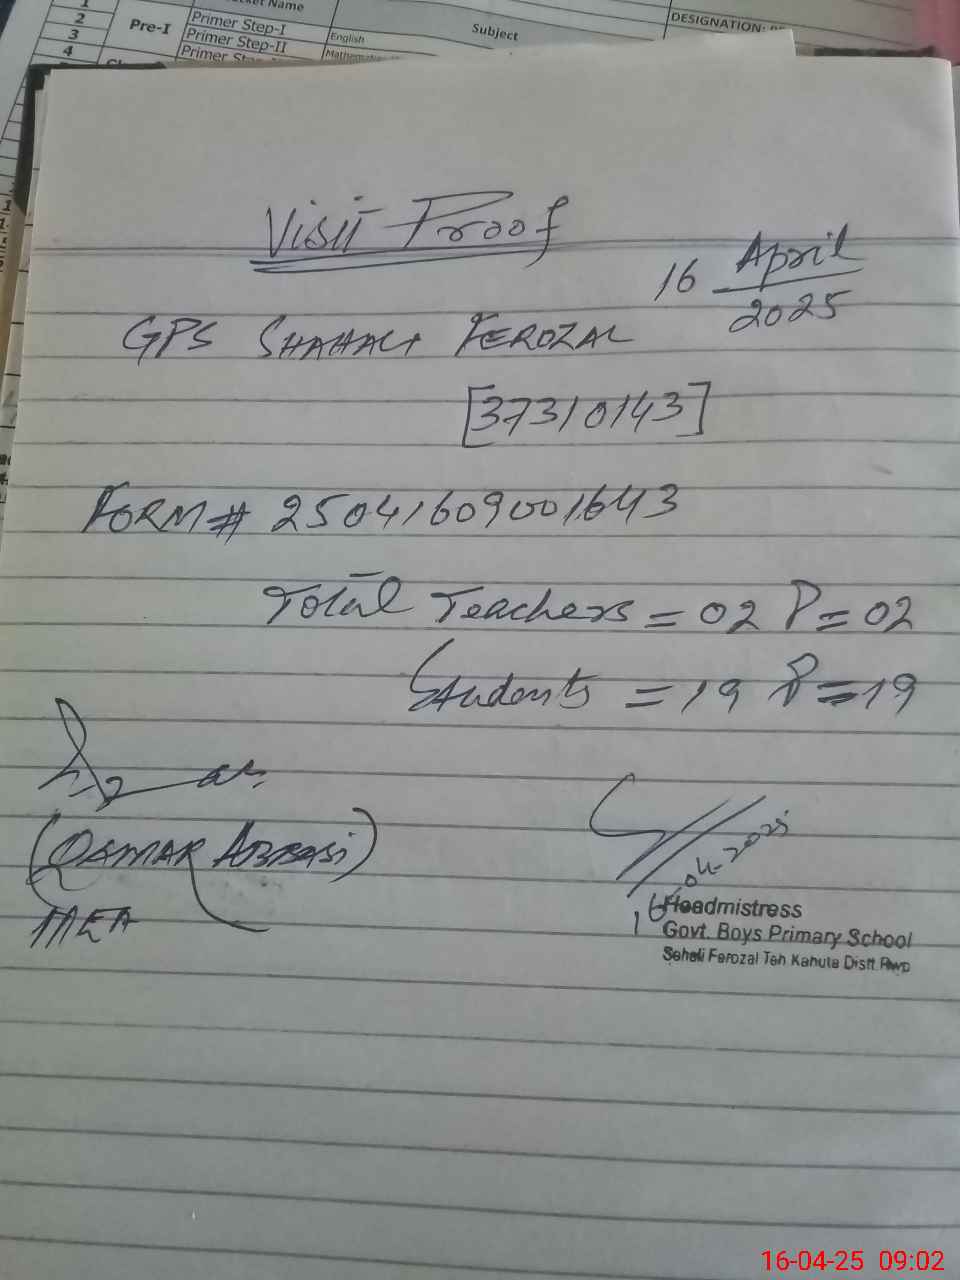 1
2
3
4
Pre-I
Primer Step-I
Primer Step-II
Name
English
Subject
DESIGNATION:
Visit Proof
16 April
2025
GPS SHAHALI FEROZAL
[37310143]
FORM# 250416090001643
Total Teachers = 02 P=02
Students = 19 P=19
(QAMAR ABBASI)
MEA
16-04-2025
Headmistress
Govt. Boys Primary School
Sehali Ferozal Teh Kahuta Distt. Rwp
16-04-25 09:02